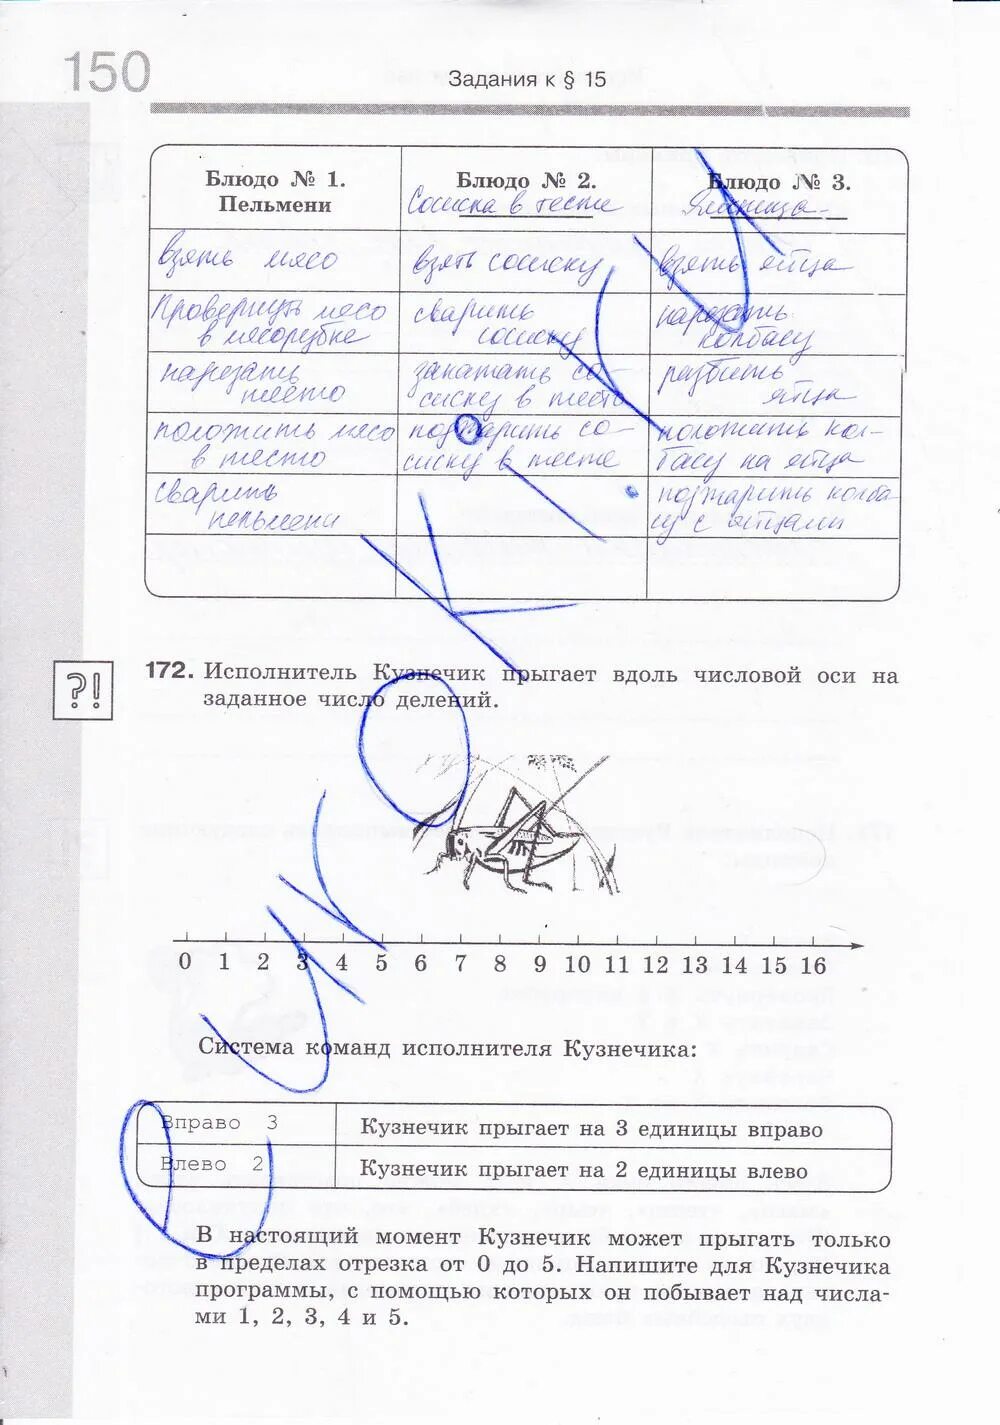 150
Задания к § 15
Блюдо № 1.
Пельмени
Блюдо № 2.
Сосиска в тесте
Блюдо № 3.
Яичница
взять мясо
взять сосиску
взять яйца
Провернуть мясо
в мясорубке
сварить
сосиску
нарезать
колбасу
нарезать
тесто
закатать со-
сиску в тесто
разбить
яйца
положить мясо
в тесто
поджарить со-
сиску в тесте
положить кол-
басу на яйца
сварить
пельмени
поджарить колба-
су с яйцами
?!
172. Исполнитель Кузнечик прыгает вдоль числовой оси на
заданное число делений.
0 1 2 3 4 5 6 7 8 9 10 11 12 13 14 15 16
Система команд исполнителя Кузнечика:
Вправо 3
Кузнечик прыгает на 3 единицы вправо
Влево 2
Кузнечик прыгает на 2 единицы влево
В настоящий момент Кузнечик может прыгать только
в пределах отрезка от 0 до 5. Напишите для Кузнечика
программы, с помощью которых он побывает над числа-
ми 1, 2, 3, 4 и 5.